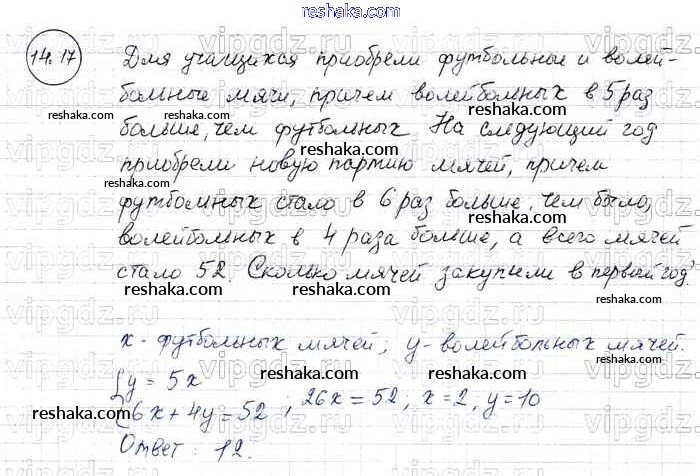 reshaka.com
14.17
Для учащихся приобрели футбольные и волей-
больные мячи, причем волейбольных в 5 раз
reshaka.com
reshaka.com
больше, чем футбольных. На следующий год
reshaka.com
приобрели новую партию мячей, причем
reshaka.com
футбольных стало в 6 раз больше, чем было,
reshaka.com
волейбольных в 4 раза больше, а всего мячей
reshaka.com
стало 52. Сколько мячей закупили в первый год?
reshaka.com
reshaka.com
x - футбольных мячей; y - волейбольных мячей.
reshaka.com
reshaka.com
{y = 5x
{6x + 4y = 52 ; 26x = 52; x = 2, y = 10
reshaka.com
reshaka.com
Ответ: 12.
reshaka.com